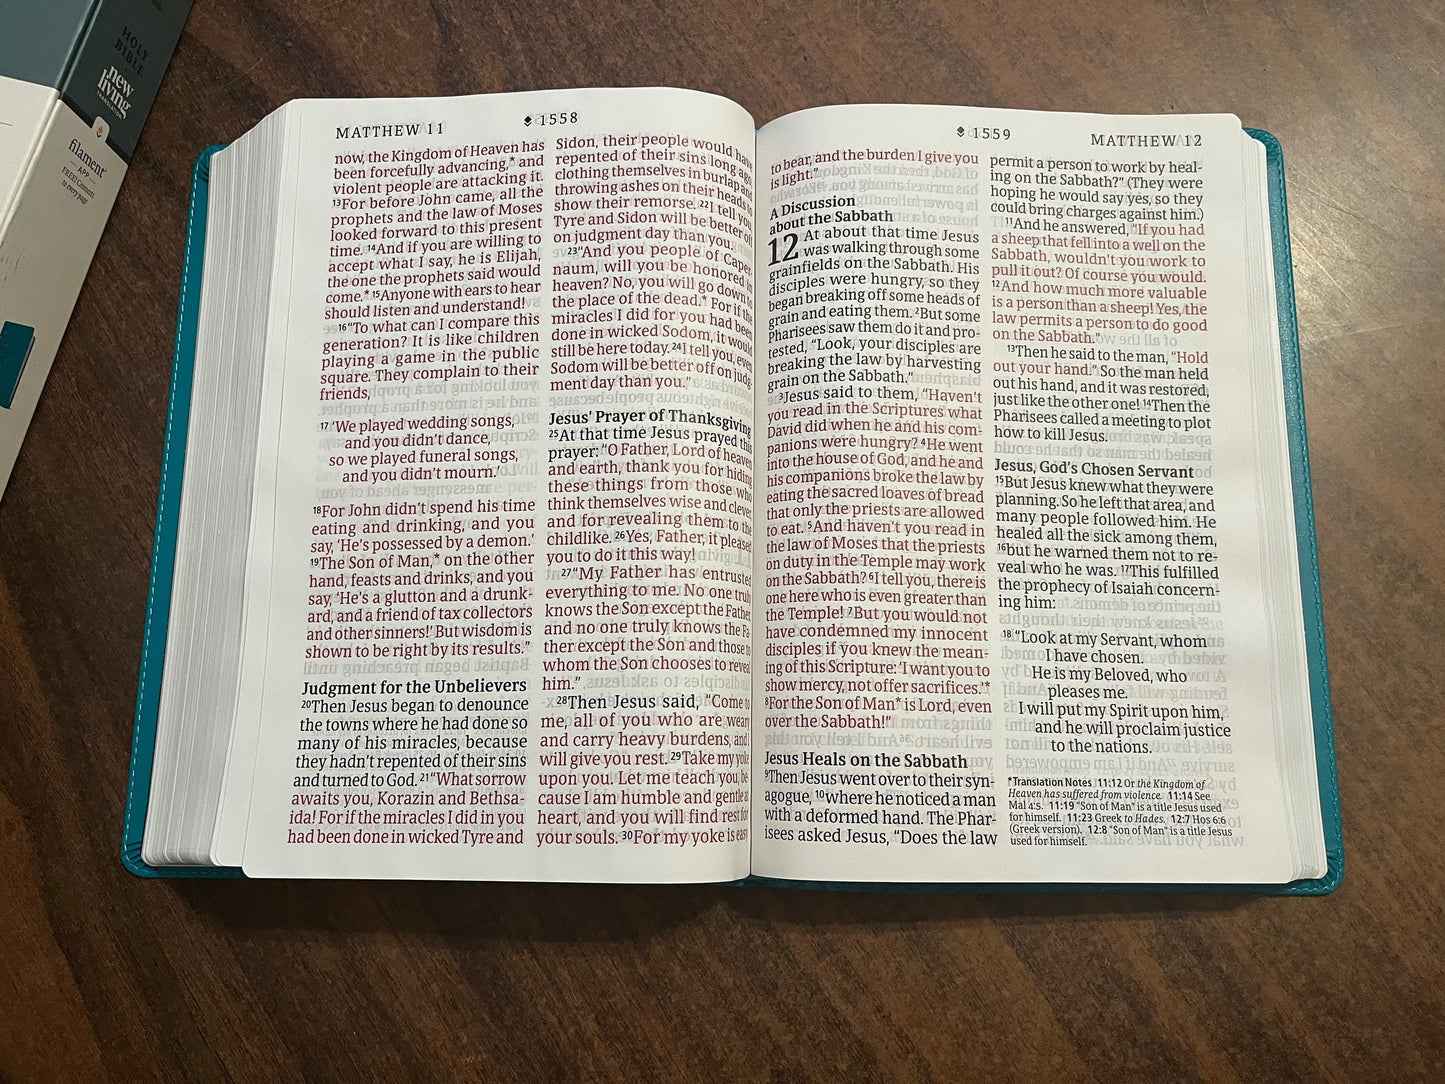 HOLY
BIBLE
new
living
TRANSLATION
filament
APP
FREE! Connects
to every page
MATTHEW 11
1558
now, the Kingdom of Heaven has
been forcefully advancing,* and
violent people are attacking it.
13For before John came, all the
prophets and the law of Moses
looked forward to this present
time. 14And if you are willing to
accept what I say, he is Elijah,
the one the prophets said would
come.* 15Anyone with ears to hear
should listen and understand!
16“To what can I compare this
generation? It is like children
playing a game in the public
square. They complain to their
friends,
17 ‘We played wedding songs,
and you didn’t dance,
so we played funeral songs,
and you didn’t mourn.’
18For John didn’t spend his time
eating and drinking, and you
say, ‘He’s possessed by a demon.’
19The Son of Man,* on the other
hand, feasts and drinks, and you
say, ‘He’s a glutton and a drunk-
ard, and a friend of tax collectors
and other sinners!’ But wisdom is
shown to be right by its results.”
Judgment for the Unbelievers
20Then Jesus began to denounce
the towns where he had done so
many of his miracles, because
they hadn’t repented of their sins
and turned to God. 21“What sorrow
awaits you, Korazin and Bethsa-
ida! For if the miracles I did in you
had been done in wicked Tyre and
Sidon, their people would have
repented of their sins long ago,
clothing themselves in burlap and
throwing ashes on their heads to
show their remorse. 22I tell you,
Tyre and Sidon will be better off
on judgment day than you.
23“And you people of Caper-
naum, will you be honored in
heaven? No, you will go down to
the place of the dead.* For if the
miracles I did for you had been
done in wicked Sodom, it would
still be here today. 24I tell you, even
Sodom will be better off on judg-
ment day than you.”
Jesus’ Prayer of Thanksgiving
25At that time Jesus prayed this
prayer: “O Father, Lord of heaven
and earth, thank you for hiding
these things from those who
think themselves wise and clever,
and for revealing them to the
childlike. 26Yes, Father, it pleased
you to do it this way!
27“My Father has entrusted
everything to me. No one truly
knows the Son except the Father,
and no one truly knows the Fa-
ther except the Son and those to
whom the Son chooses to reveal
him.”
28Then Jesus said, “Come to
me, all of you who are weary
and carry heavy burdens, and I
will give you rest. 29Take my yoke
upon you. Let me teach you, be-
cause I am humble and gentle at
heart, and you will find rest for
your souls. 30For my yoke is easy
1559
MATTHEW 12
to bear, and the burden I give you
is light.”
A Discussion
about the Sabbath
12 At about that time Jesus
was walking through some
grainfields on the Sabbath. His
disciples were hungry, so they
began breaking off some heads of
grain and eating them. 2But some
Pharisees saw them do it and pro-
tested, “Look, your disciples are
breaking the law by harvesting
grain on the Sabbath.”
3Jesus said to them, “Haven’t
you read in the Scriptures what
David did when he and his com-
panions were hungry? 4He went
into the house of God, and he and
his companions broke the law by
eating the sacred loaves of bread
that only the priests are allowed
to eat. 5And haven’t you read in
the law of Moses that the priests
on duty in the Temple may work
on the Sabbath? 6I tell you, there is
one here who is even greater than
the Temple! 7But you would not
have condemned my innocent
disciples if you knew the mean-
ing of this Scripture: ‘I want you to
show mercy, not offer sacrifices.’*
8For the Son of Man* is Lord, even
over the Sabbath!”
Jesus Heals on the Sabbath
9Then Jesus went over to their syn-
agogue, 10where he noticed a man
with a deformed hand. The Phar-
isees asked Jesus, “Does the law
permit a person to work by heal-
ing on the Sabbath?” (They were
hoping he would say yes, so they
could bring charges against him.)
11And he answered, “If you had
a sheep that fell into a well on the
Sabbath, wouldn’t you work to
pull it out? Of course you would.
12And how much more valuable
is a person than a sheep! Yes, the
law permits a person to do good
on the Sabbath.”
13Then he said to the man, “Hold
out your hand.” So the man held
out his hand, and it was restored,
just like the other one! 14Then the
Pharisees called a meeting to plot
how to kill Jesus.
Jesus, God’s Chosen Servant
15But Jesus knew what they were
planning. So he left that area, and
many people followed him. He
healed all the sick among them,
16but he warned them not to re-
veal who he was. 17This fulfilled
the prophecy of Isaiah concern-
ing him:
18 “Look at my Servant, whom
I have chosen.
He is my Beloved, who
pleases me.
I will put my Spirit upon him,
and he will proclaim justice
to the nations.
*Translation Notes 11:12 Or the Kingdom of
Heaven has suffered from violence. 11:14 See
Mal 4:5. 11:19 “Son of Man” is a title Jesus used
for himself. 11:23 Greek to Hades. 12:7 Hos 6:6
(Greek version). 12:8 “Son of Man” is a title Jesus
used for himself.